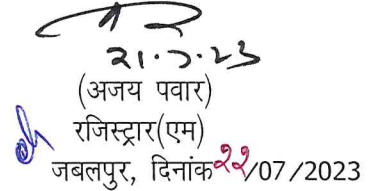 21.7.23
(अजय पवार)
रजिस्ट्रार(एम)
जबलपुर, दिनांक २२/07/2023